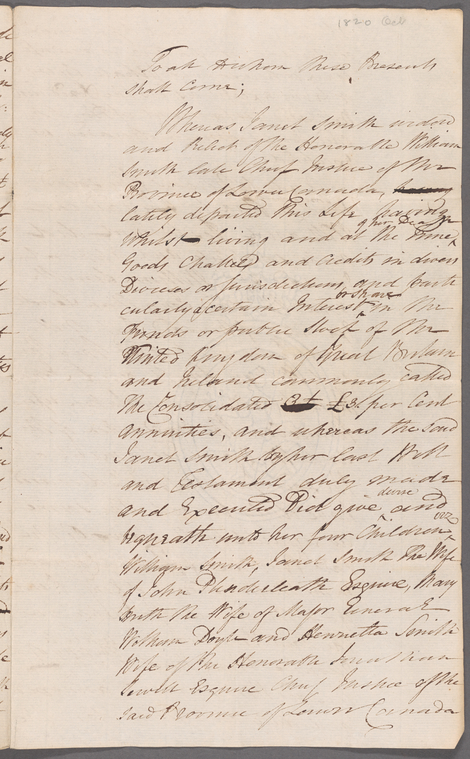 1820 Oct
To all Whom these Presents
shall Come;
Whereas Janet Smith widow
and Relict of the Honorable William
Smith late Chief Justice of the
Province of Lower Canada,
lately departed this Life having
whilst living and at the time
of her Death
Goods Chattels and Credits in divers
Dioceses or Jurisdictions, and parti
cularly a certain Interest in the
or share
Funds or public Stock of the
United Kingdom of Great Britain
and Ireland commonly called
the Consolidated £3 per Cent
Annuities, and whereas the said
Janet Smith by her last Will
and Testament duly made
and Executed Did give and
devise
bequeath unto her four Children
viz
William Smith, Janet Smith the Wife
of John Plenderleath Esquire, Mary
Smith the Wife of Major General
Welbore Doyle and Henrietta Smith
Wife of the Honorable Jonathan
Sewell Esquire Chief Justice of the
said Province of Lower Canada